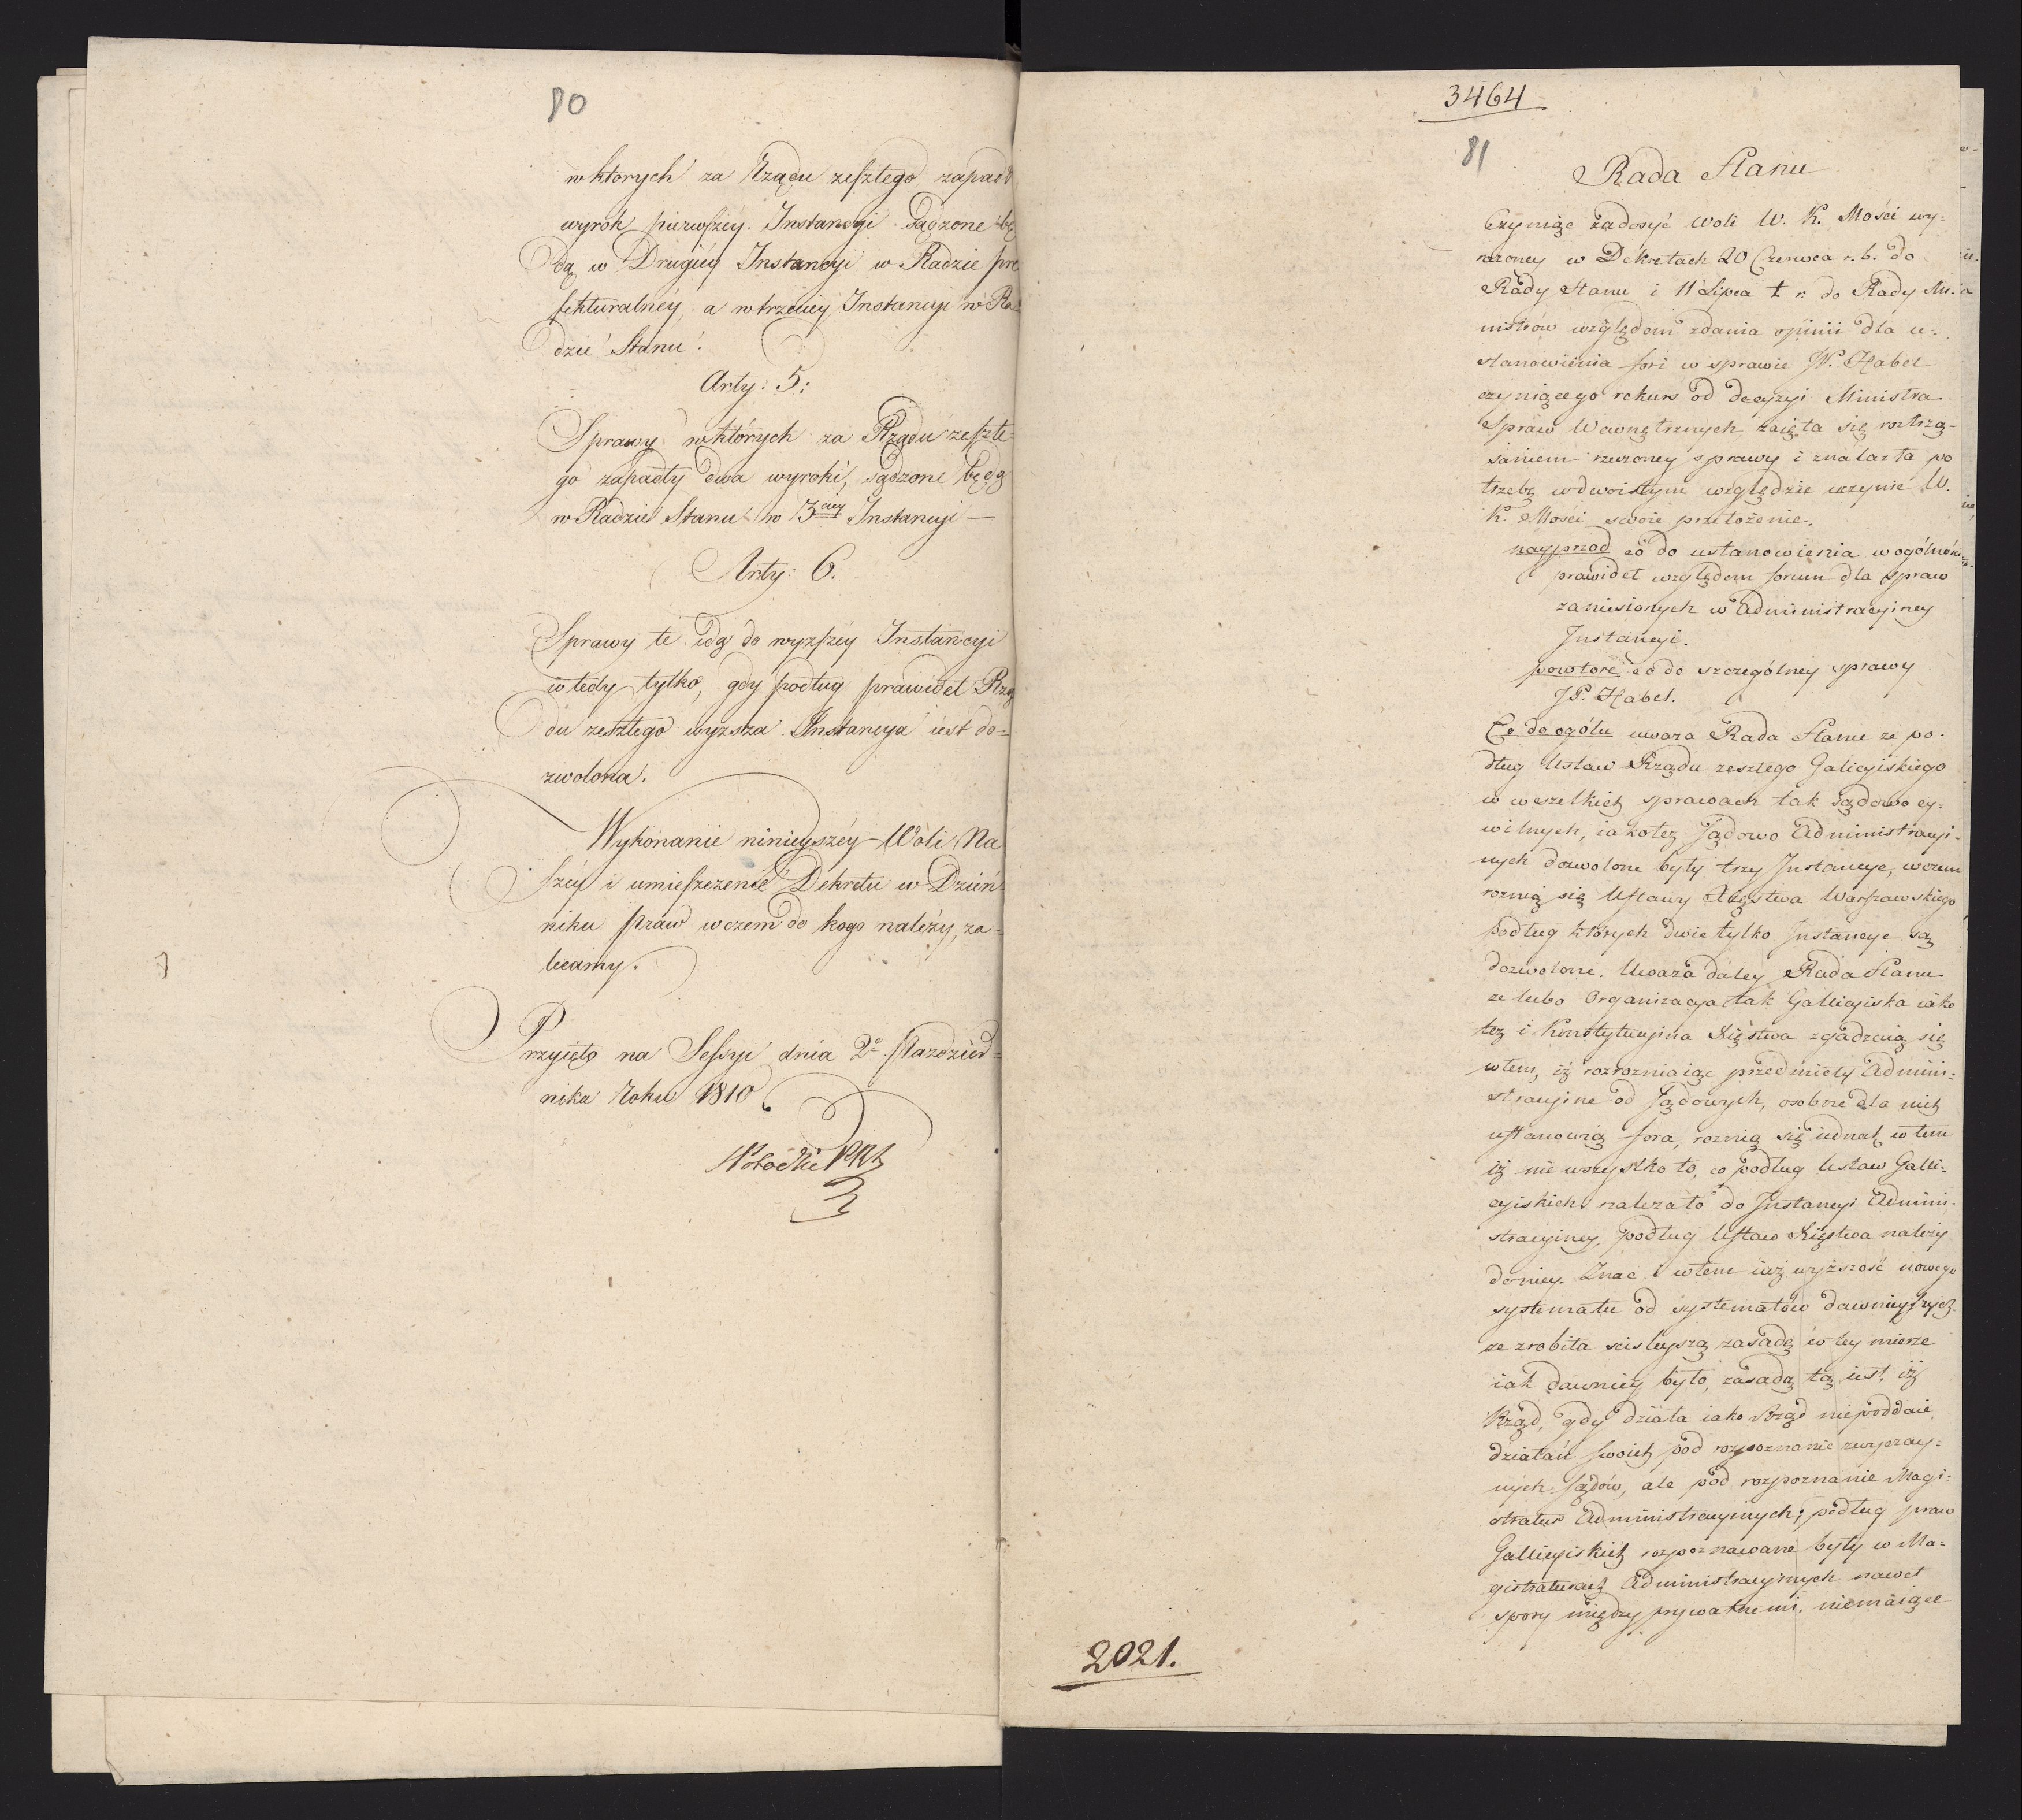 80
w ktorych za Rządu zeszłego zapadł
wyrok pierwszey Instancyi sądzone bę
dą w Drugiéy Instancyi w Radzie pre
fekturalnéy a w trzeciey Instancyi w Ra
dzie Stanu.
Arty: 5:
Sprawy w których za Rządu zeszłe
go zapadły dwa wyroki, sądzone będą
w Radzie Stanu w 3ciey Instancyi —
Arty: 6.
Sprawy te idą do wyzszéy Instancyi
wtedy tylko, gdy podług prawideł Rzą
du zeszłego wyzsza Instancya iest do=
zwolona.
Wykonanie ninieyszéy Woli Na
széy i umieszczenie Dekretu w Dzień
niku praw w czem do kogo należy, za=
lecamy.
Przyięto na Sessyi dnia 2o Pazdzier=
nika Roku 1810
3464
81
Rada Stanu
Czyniąc zadosyć Woli W. K. Mości wy=
rażoney w Dekretach 20 Czerwca r. b. do
Rady Stanu i 11 Lipca t. r. do Rady Mi=
nistrów względem zdania opinii dla u=
stanowienia fori w sprawie JP. Habel
czyniącego rekurs od decyzyi Ministra
Spraw Wewnętrznych, zaięła się roztrzą=
saniem rzeczoney sprawy i znalazła po
trzebę w dwoistym względzie uczynić W.
K. Mości swoie przełożenie.
nayprzod co do ustanowienia w ogólności
prawideł względem forum dla spraw
zaniesionych w Administracyiney
Instancyi.
powtore co do szczególney sprawy
JP. Habel.
Co do ogółu uważa Rada Stanu ze po=
dług Ustaw Rządu zeszłego Galicyiskiego
w wszelkich sprawach tak sądowo cy=
wilnych, iako też Sądowo Administracyi=
nych dozwolone były trzy Instancye, w czem
roznią się Ustawy Xięstwa Warszawskiego
podług których dwie tylko Instancye są
dozwolone. Uważa daley Rada Stanu
ze lubo Organizacya tak Gallicyiska iako
też i Konstytucyina Xięstwa zgadzaią się
w tem, iż rozrozniaiąc przedmioty Admini=
stracyine od Sądowych, osobne dla nich
ustanowią fora, roznią się iednak w tem
iż nie wszystko to, co podług Ustaw Galli=
cyiskich należało do Instancyi Admini=
stracyiney, podług Ustaw Xięstwa należy
do niey. Znać i w tem iuż wyższość nowego
systematu od systematów dawnieyszych
ze zrobiła scisleyszą zasadę w tey mierze
iak dawniey było, zasadą tą iest, iż
Rząd, gdy działa iako Rząd niepoddaie
działań swoich pod rozpoznanie zwyczay=
nych sądów, ale pod rozpoznanie Magi=
stratur Administracyinych; podług praw
Gallicyiskich rozpoznawane były w Ma=
gistraturach Administracyinych nawet
spory między prywatnemi, niemaiące
2021.